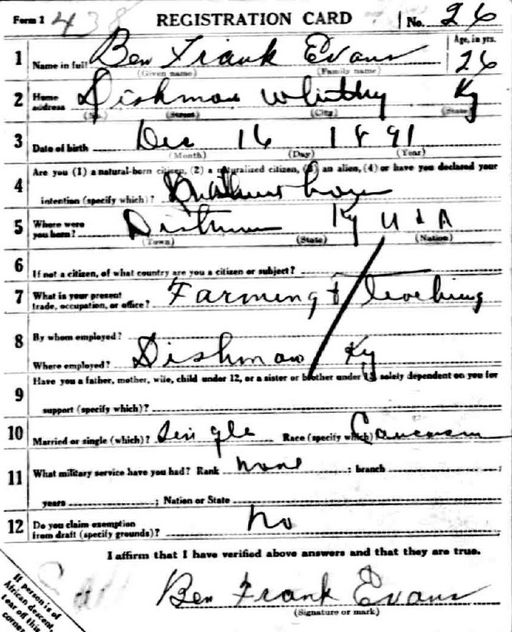 Form 1 438 REGISTRATION CARD No. 26
1 Name in full Ben Frank Evans Age, in yrs. 26
(Given name) (Family name)
2 Home address Dishman Whitley Ky
(No.) (Street) (City) (State)
3 Date of birth Dec 16 1891
(Month) (Day) (Year)
Are you (1) a natural-born citizen, (2) a naturalized citizen, (3) an alien, (4) or have you declared your
4 intention (specify which)? Natural born
5 Where were you born? Dishman Ky U S A
(Town) (State) (Nation)
6 If not a citizen, of what country are you a citizen or subject?
7 What is your present trade, occupation, or office? Farming & Teaching
8 By whom employed?
Where employed? Dishman Ky
9 Have you a father, mother, wife, child under 12, or a sister or brother under 12, solely dependent on you for
support (specify which)?
10 Married or single (which)? Single Race (specify which)? Caucasian
11 What military service have you had? Rank none ; branch ;
years ; Nation or State
12 Do you claim exemption from draft (specify grounds)? No
I affirm that I have verified above answers and that they are true.
Ben Frank Evans
(Signature or mark)
If person is of
African descent,
tear off this
corner